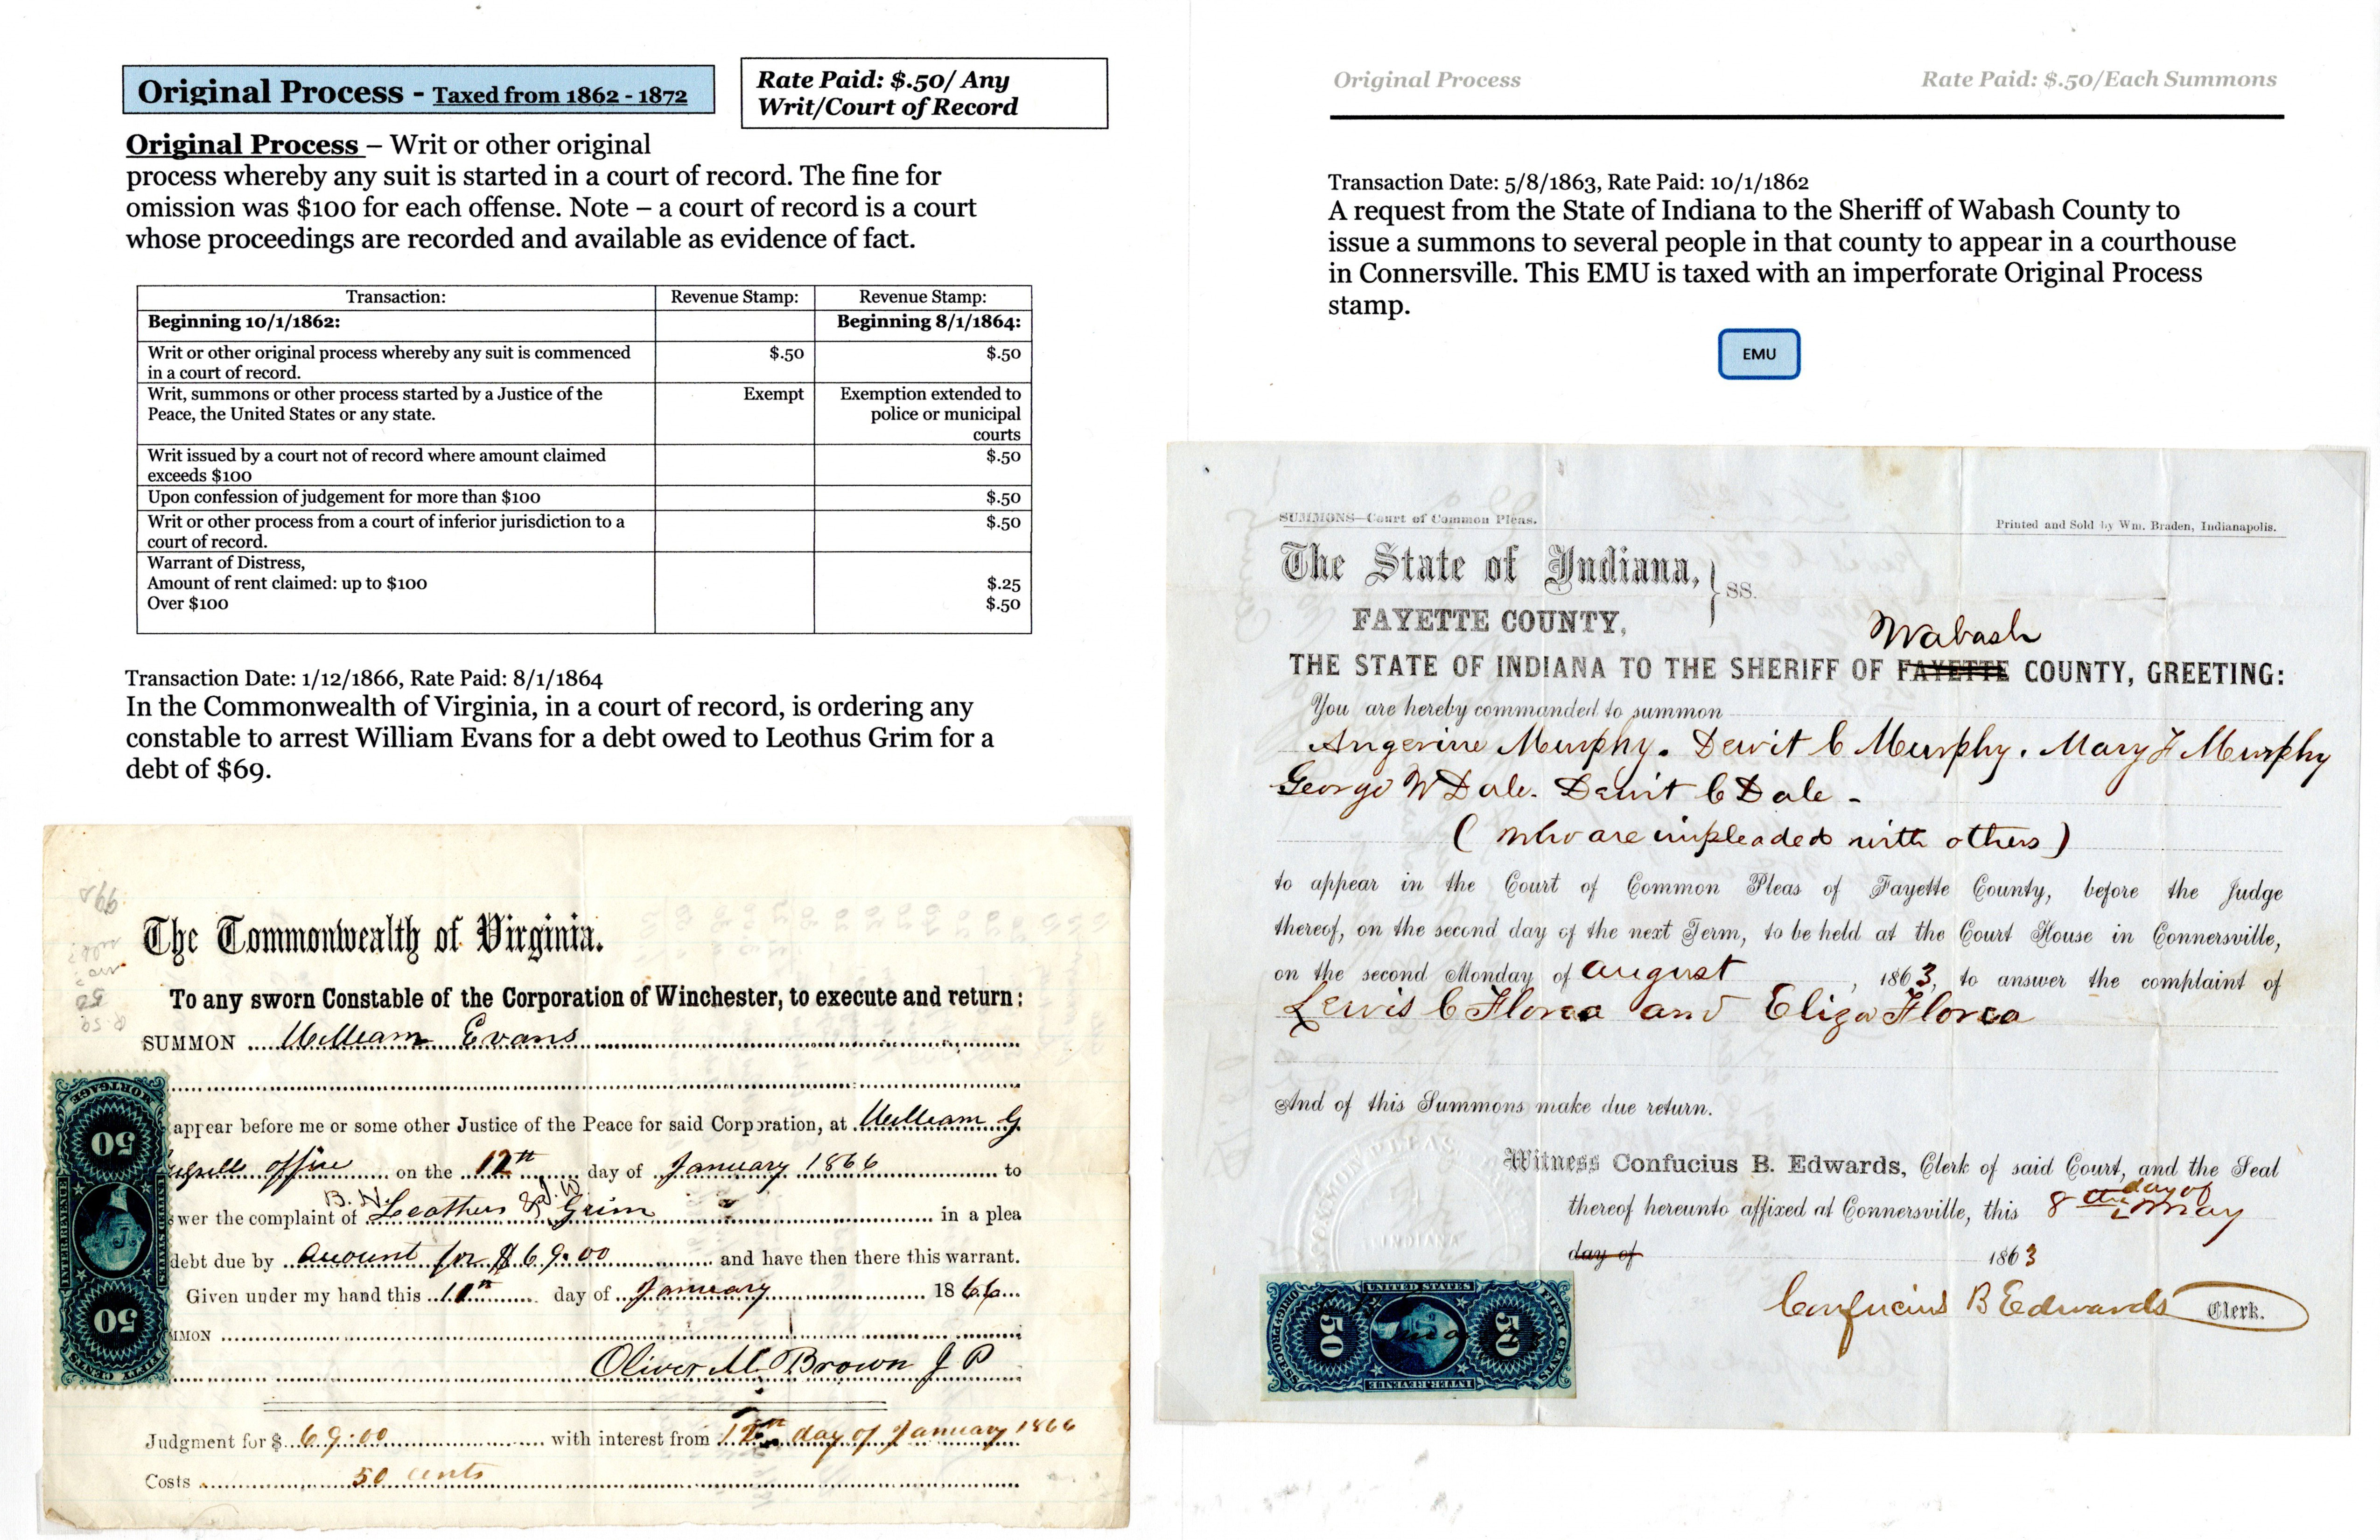 Original Process - Taxed from 1862 - 1872
Rate Paid: $.50/ Any
Writ/Court of Record
Original Process – Writ or other original
process whereby any suit is started in a court of record. The fine for
omission was $100 for each offense. Note – a court of record is a court
whose proceedings are recorded and available as evidence of fact.
Transaction: Revenue Stamp: Revenue Stamp:
Beginning 10/1/1862: Beginning 8/1/1864:
Writ or other original process whereby any suit is commenced $.50 $.50
in a court of record.
Writ, summons or other process started by a Justice of the Exempt Exemption extended to
Peace, the United States or any state. police or municipal
courts
Writ issued by a court not of record where amount claimed $.50
exceeds $100
Upon confession of judgement for more than $100 $.50
Writ or other process from a court of inferior jurisdiction to a $.50
court of record.
Warrant of Distress,
Amount of rent claimed: up to $100 $.25
Over $100 $.50
Transaction Date: 1/12/1866, Rate Paid: 8/1/1864
In the Commonwealth of Virginia, in a court of record, is ordering any
constable to arrest William Evans for a debt owed to Leothus Grim for a
debt of $69.
The Commonwealth of Virginia.
To any sworn Constable of the Corporation of Winchester, to execute and return:
SUMMON William Evans
appear before me or some other Justice of the Peace for said Corporation, at William G
office on the 12th day of January 1866 to
B. N. & J. W
wer the complaint of Leathers Grim in a plea
debt due by account for $69.00 and have then there this warrant.
Given under my hand this 11th day of January 1866
MMON
Oliver M. Brown J P
Judgment for $ 69.00 with interest from 12th day of January 1866
Costs 50 cents
MORTGAGE
50
INTER. REVENUE
UNITED STATES
50
FIFTY CENTS
Original Process
Rate Paid: $.50/Each Summons
Transaction Date: 5/8/1863, Rate Paid: 10/1/1862
A request from the State of Indiana to the Sheriff of Wabash County to
issue a summons to several people in that county to appear in a courthouse
in Connersville. This EMU is taxed with an imperforate Original Process
stamp.
EMU
SUMMONS—Court of Common Pleas.
Printed and Sold by Wm. Braden, Indianapolis.
The State of Indiana, } SS.
FAYETTE COUNTY,
Wabash
THE STATE OF INDIANA TO THE SHERIFF OF FAYETTE COUNTY, GREETING:
You are hereby commanded to summon
Angerine Murphy. Dewit C Murphy. Mary F Murphy
George W Dale. Dewit C Dale -
( who are impleaded with others )
to appear in the Court of Common Pleas of Fayette County, before the Judge
thereof, on the second day of the next Term, to be held at the Court House in Connersville,
on the second Monday of August, 1863, to answer the complaint of
Lewis C Florea and Eliza Florea
And of this Summons make due return.
Witness Confucius B. Edwards, Clerk of said Court, and the Seal
thereof hereunto affixed at Connersville, this 8th day of May
day of 1863
Confucius B Edwards Clerk.
COMMON PLEAS
INDIANA
UNITED STATES
ORIG. PROCESS
50
50
FIFTY CENTS
INTER. REVENUE